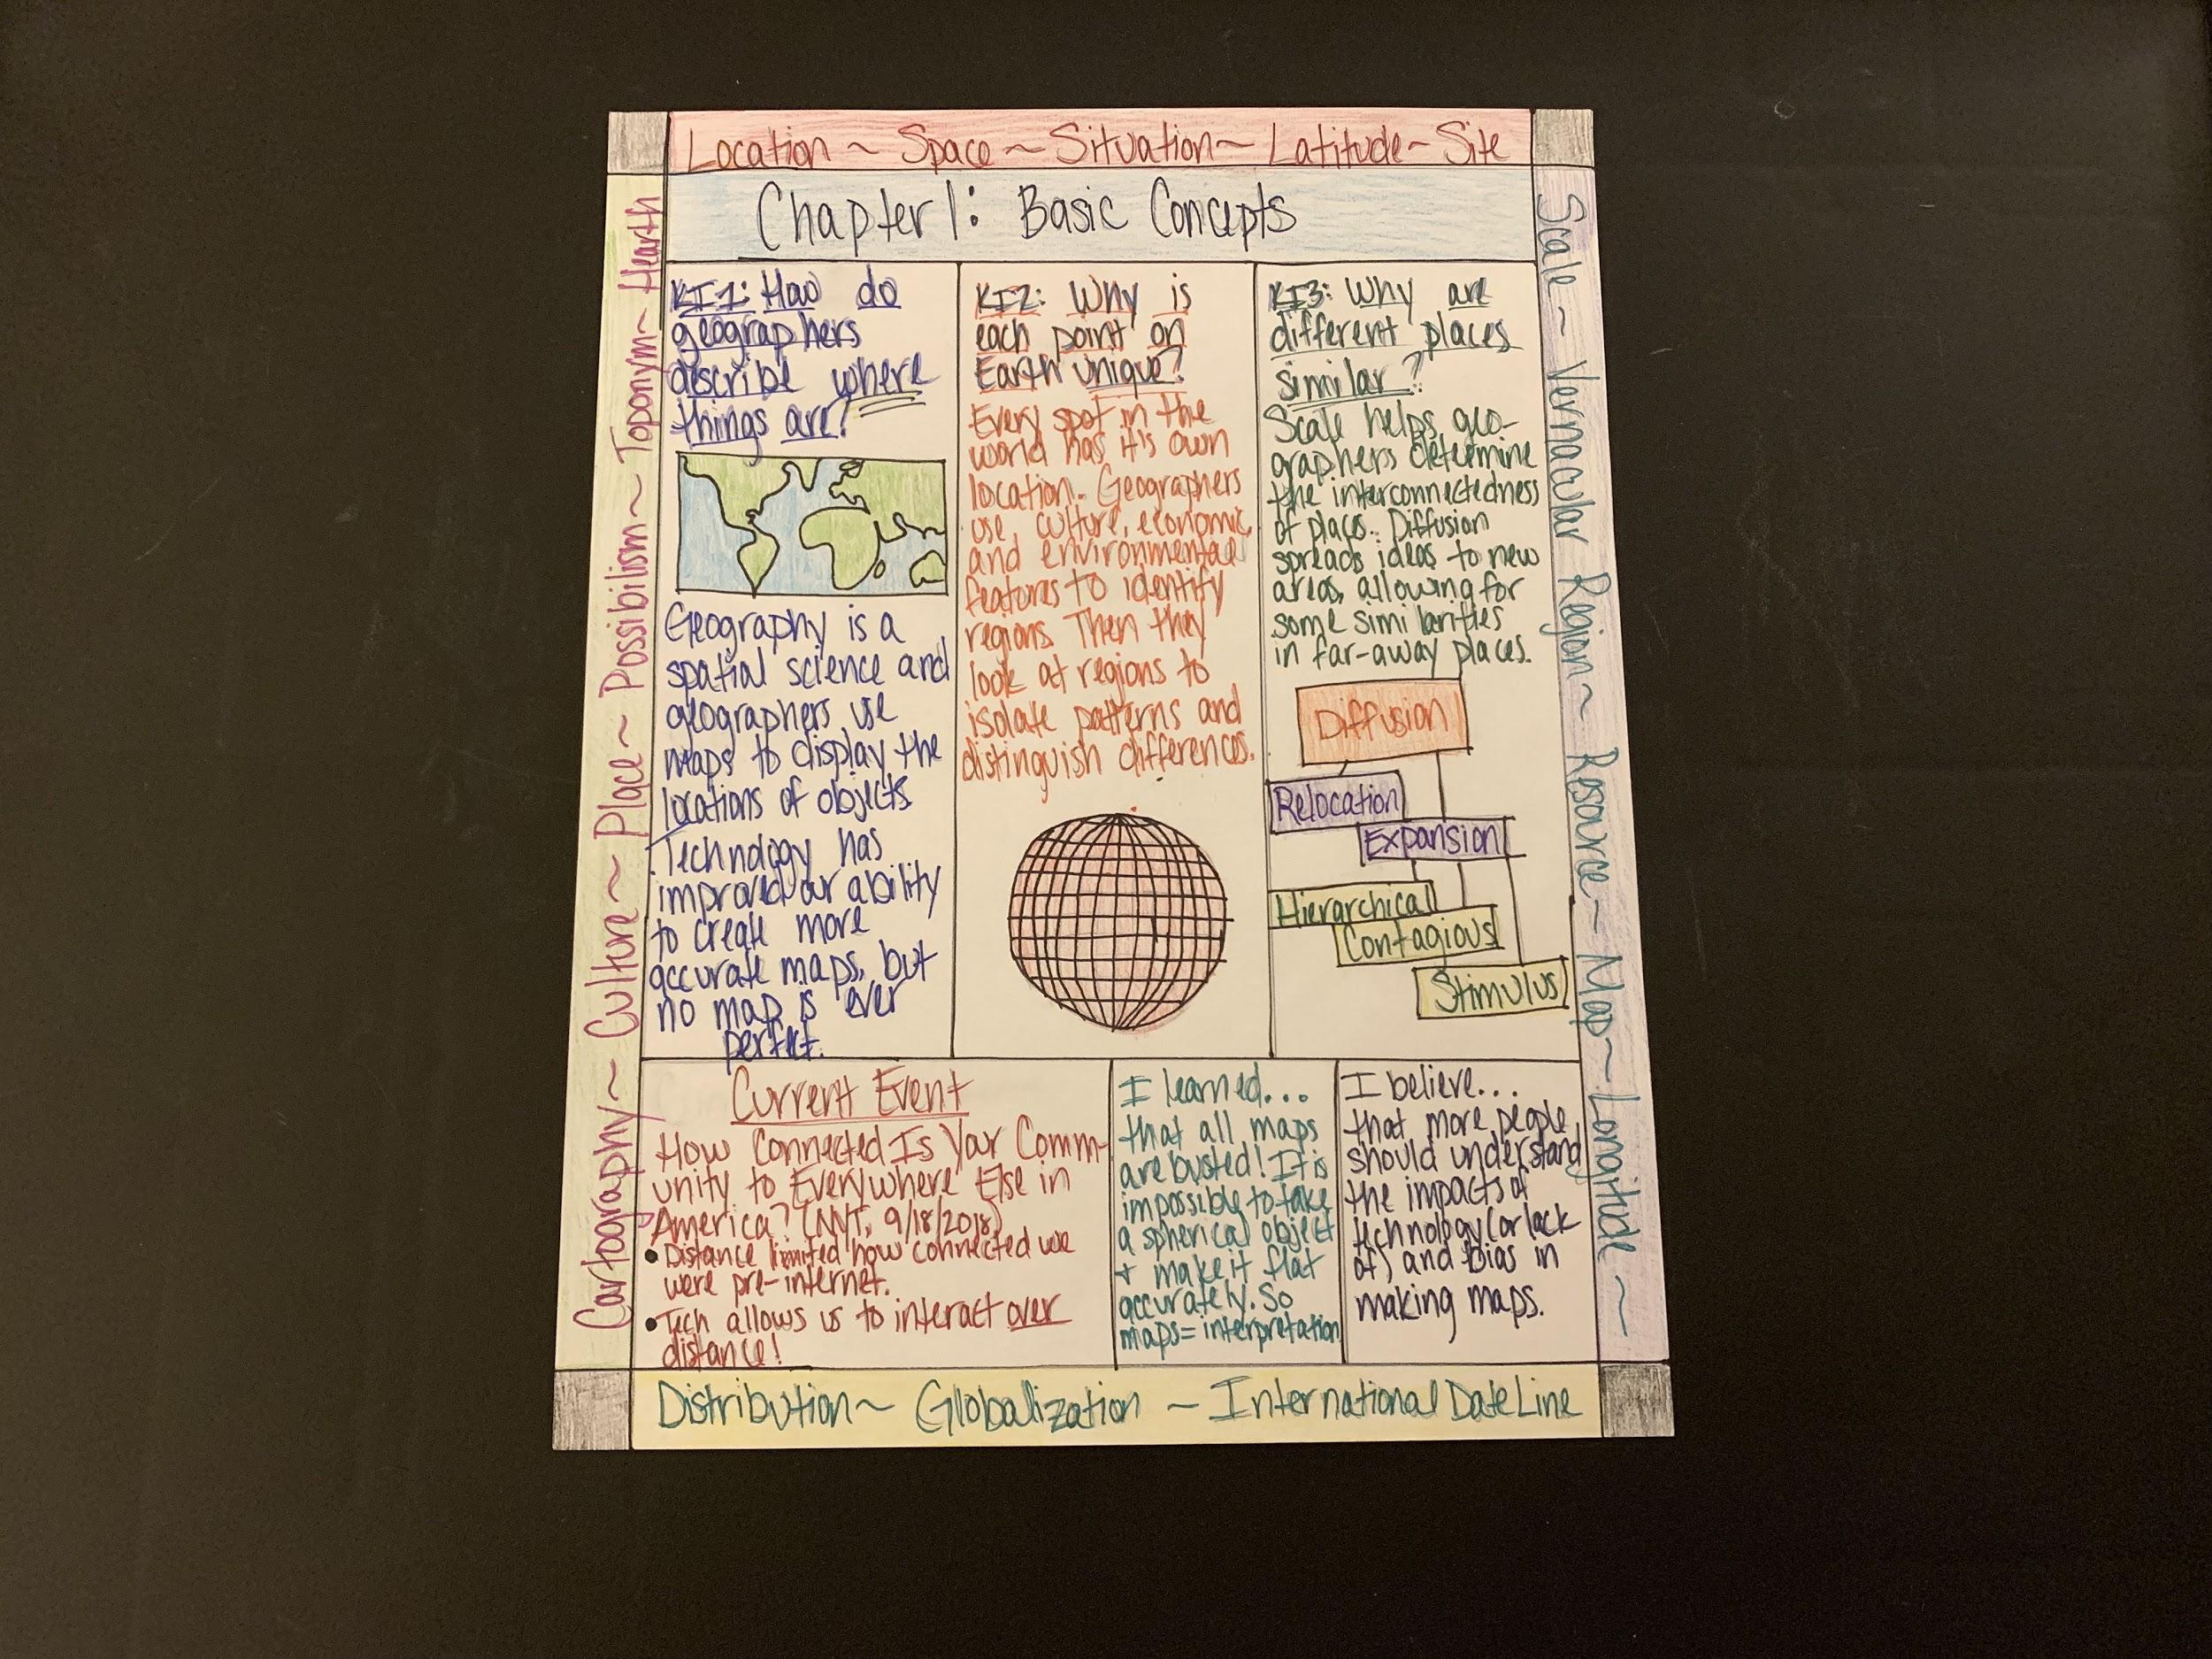 Location ~ Space ~ Situation ~ Latitude ~ Site
Chapter 1: Basic Concepts
Cartography ~ Culture ~ Place ~ Possibilism ~ Toponym ~ Hearth
KI1: How do
geographers
describe where
things are?
Geography is a
spatial science and
geographers use
maps to display the
locations of objects.
Technology has
improved our ability
to create more
accurate maps, but
no map is ever
perfect.
KI2: Why is
each point on
Earth unique?
Every spot in the
world has it's own
location. Geographers
use culture, economic,
and environmental
features to identify
regions. Then they
look at regions to
isolate patterns and
distinguish differences.
KI3: Why are
different places
similar?
Scale helps geo-
graphers determine
the interconnectedness
of places. Diffusion
spreads ideas to new
areas, allowing for
some similarities
in far-away places.
Diffusion
Relocation
Expansion
Hierarchical
Contagious
Stimulus
Scale ~ Vernacular Region ~ Resource ~ Map ~ Longitude ~
Current Event
How Connected Is Your Comm-
unity to Everywhere Else in
America? (NYT, 9/18/2018)
• Distance limited how connected we
were pre-internet.
• Tech allows us to interact over
distance!
I learned...
that all maps
are busted! It is
impossible to take
a spherical object
+ make it flat
accurately. So
maps = interpretation
I believe...
that more people
should understand
the impacts of
technology (or lack
of) and bias in
making maps.
Distribution ~ Globalization ~ International Date Line